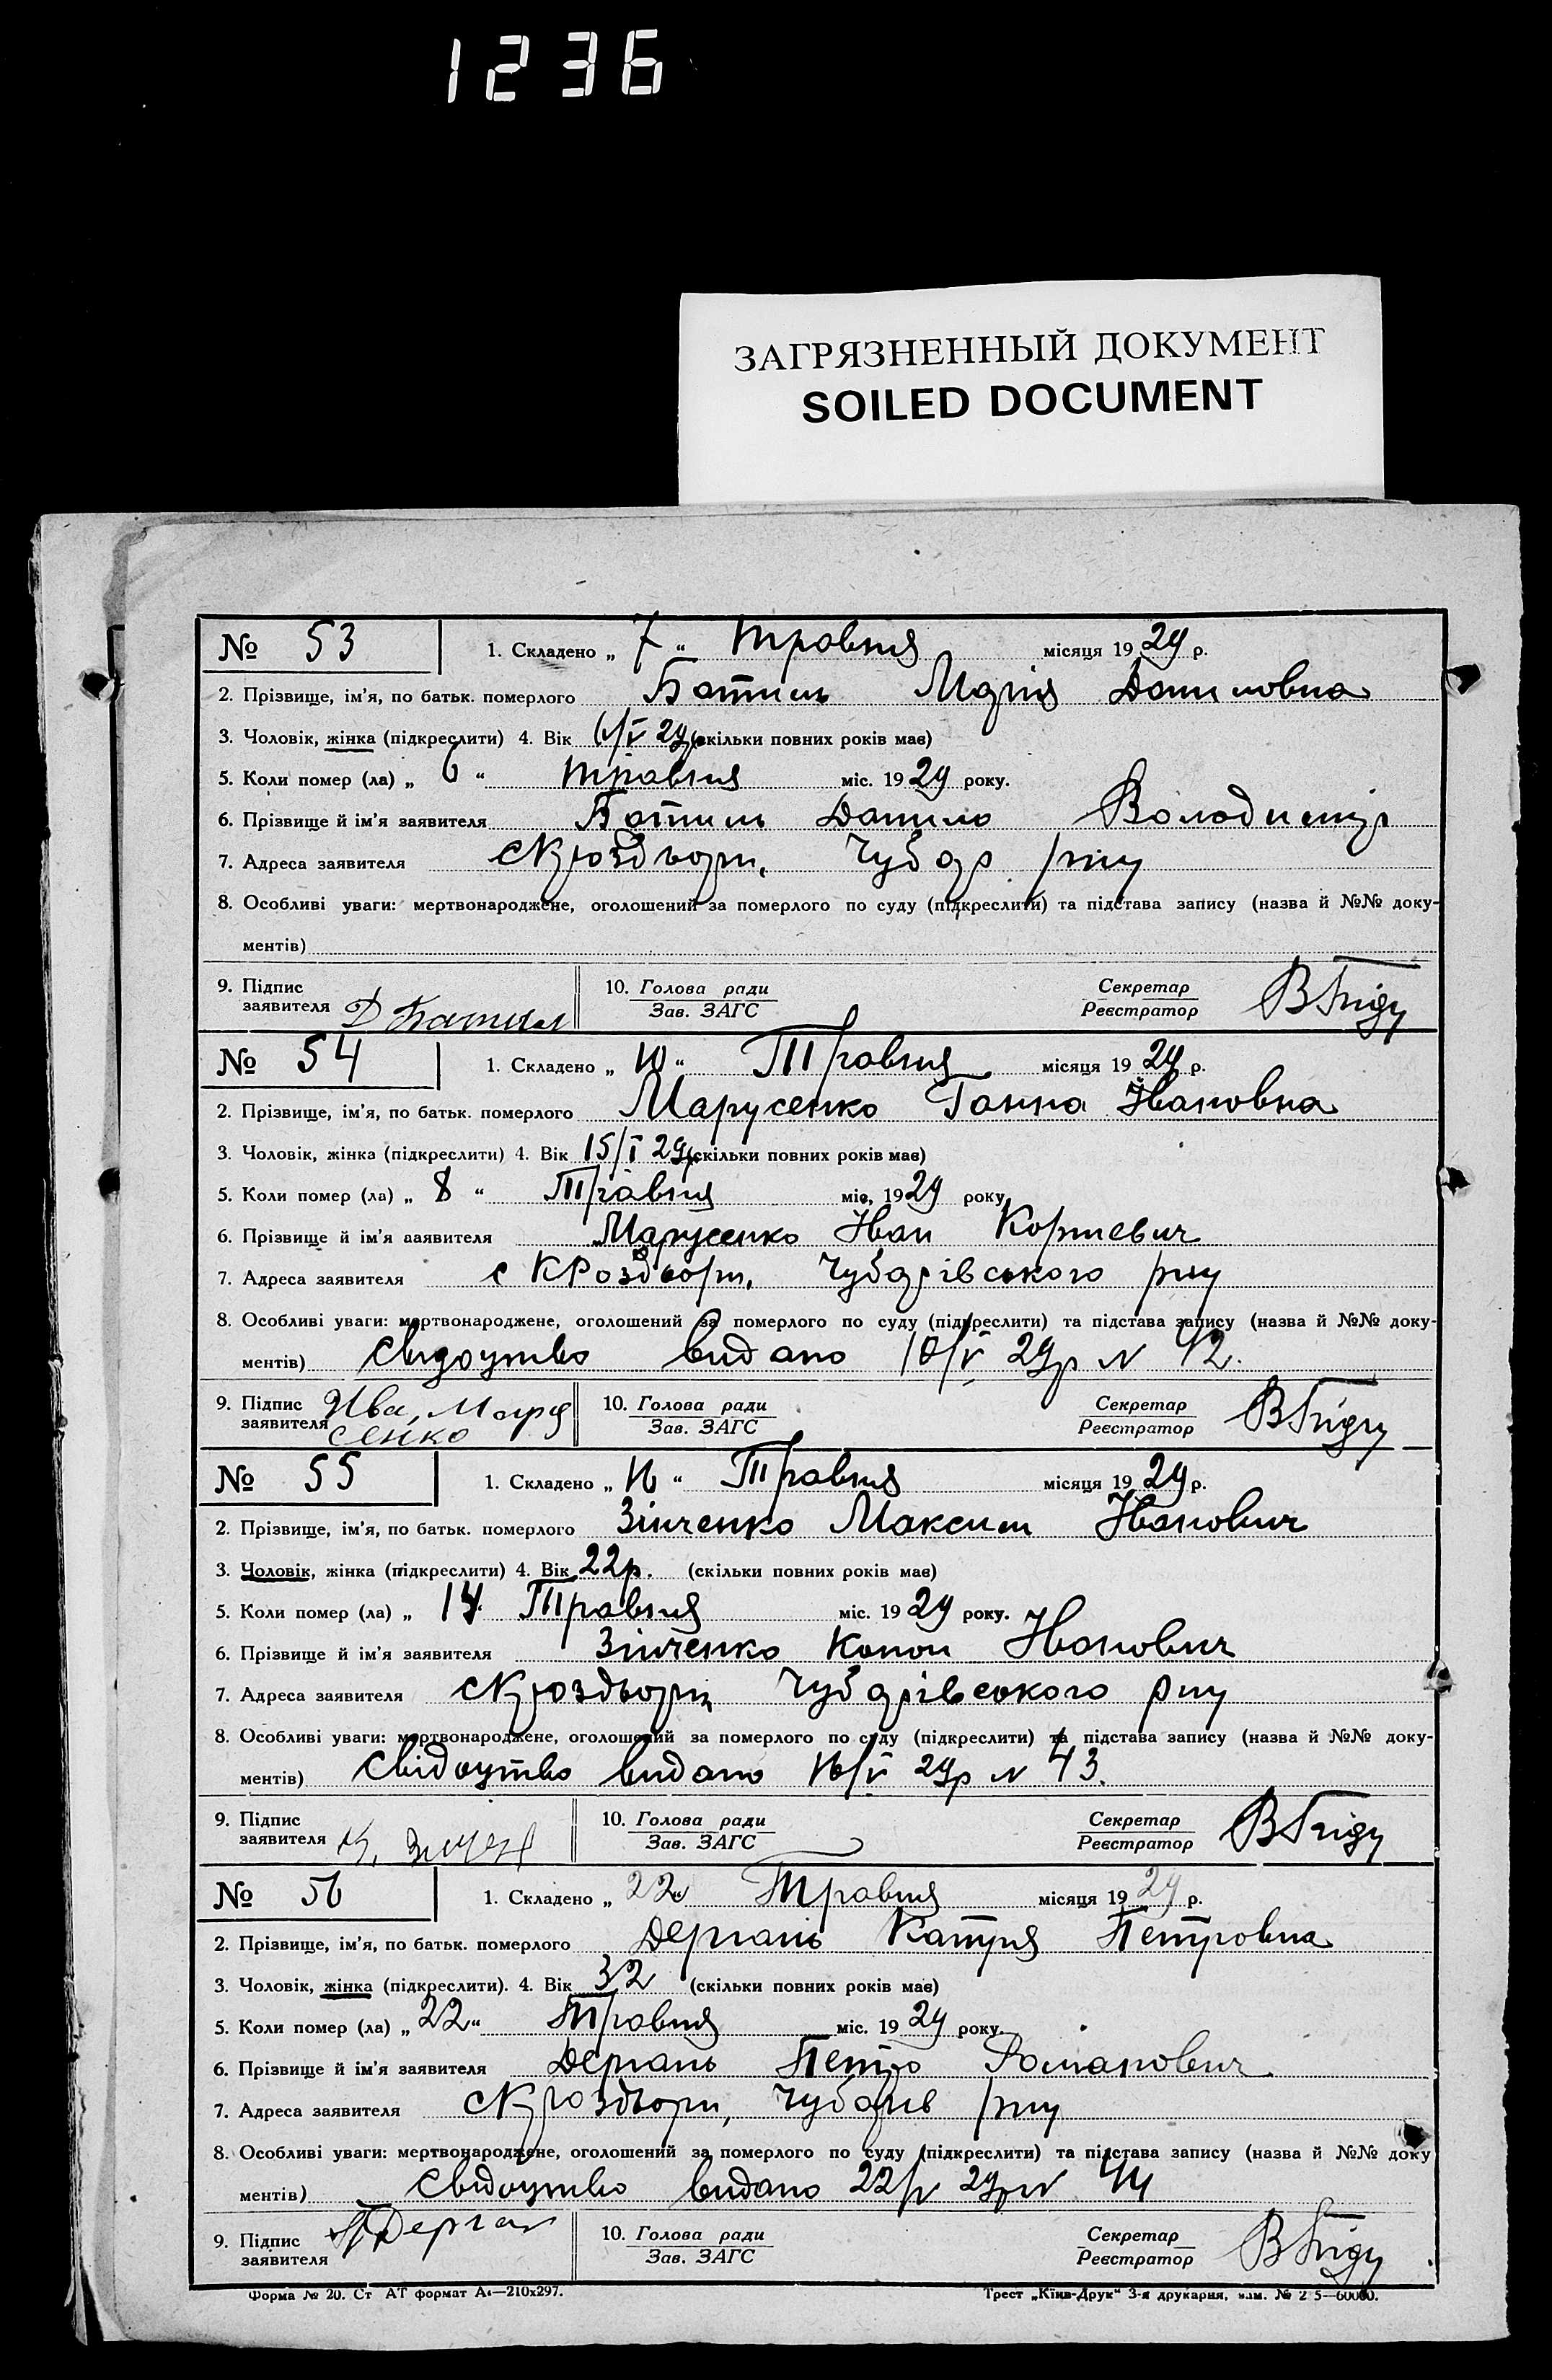 1236
ЗАГРЯЗНЕННЫЙ ДОКУМЕНТ
SOILED DOCUMENT
№ 53 1. Складено „ 7 “ травня місяця 19 29 р.
2. Прізвище, ім'я, по батьк. померлого Батиль Марія Даниловна
3. Чоловік, жінка (підкреслити) 4. Вік 6/V 29р (скільки повних років має)
5. Коли помер (ла) „ 6 “ травня міс. 19 29 року.
6. Прізвище й ім'я заявителя Батиль Данило Володимір
7. Адреса заявителя с Чубар р-ну
8. Особливі уваги: мертвонароджене, оголошений за померлого по суду (підкреслити) та підстава запису (назва й №№ доку-
ментів)
9. Підпис заявителя Д Батил 10. Голова ради Зав. ЗАГС Секретар Реєстратор
№ 54 1. Складено „ 10 “ Травня місяця 19 29 р.
2. Прізвище, ім'я, по батьк. померлого Марусенко Ганна Івановна
3. Чоловік, жінка (підкреслити) 4. Вік 15/I 29р (скільки повних років має)
5. Коли помер (ла) „ 8 “ Травня міс, 19 29 року
6. Прізвище й ім'я заявителя Марусенко Іван Корніевич
7. Адреса заявителя с Чубарівського р-ну
8. Особливі уваги: мертвонароджене, оголошений за померлого по суду (підкреслити) та підстава запису (назва й №№ доку-
ментів) свідоцтво видано 10/V 29р N 42.
9. Підпис заявителя Ива, Мару
сенко 10. Голова ради Зав. ЗАГС Секретар Реєстратор
№ 55 1. Складено „ 16 “ Травня місяця 19 29 р.
2. Прізвище, ім'я, по батьк. померлого Зінченко Максим Іванович
3. Чоловік, жінка (підкреслити) 4. Вік 22р. (скільки повних років має)
5. Коли помер (ла) „ 14 Травня міс. 19 29 року.
6. Прізвище й ім'я заявителя Зінченко Конон Іванович
7. Адреса заявителя с Чубарівського р-ну
8. Особливі уваги: мертвонароджене, оголошений за померлого по суду (підкреслити) та підстава запису (назва й №№ доку-
ментів) свідоцтво видано 16/V 29р N 43.
9. Підпис заявителя 10. Голова ради Зав. ЗАГС Секретар Реєстратор
№ 56 1. Складено „ 22 “ Травня місяця 19 29 р.
2. Прізвище, ім'я, по батьк. померлого Дергань Катря Петровна
3. Чоловік, жінка (підкреслити). 4. Вік 32 (скільки повних років має)
5. Коли помер (ла) „ 22 “ Травня міс. 19 29 року.
6. Прізвище й ім'я заявителя Дергань Петро Романович
7. Адреса заявителя с Чубарів р-ну
8. Особливі уваги: мертвонароджене, оголошений за померлого по суду (підкреслити) та підстава запису (назва й №№ доку
ментів) свідоцтво видано 22/V 29р N 44
9. Підпис заявителя П Дерган 10. Голова ради Зав. ЗАГС Секретар Реєстратор
Форма № 20. Ст АТ формат А4—210х297. Трест „Київ-Друк“ 3-я друкарня,